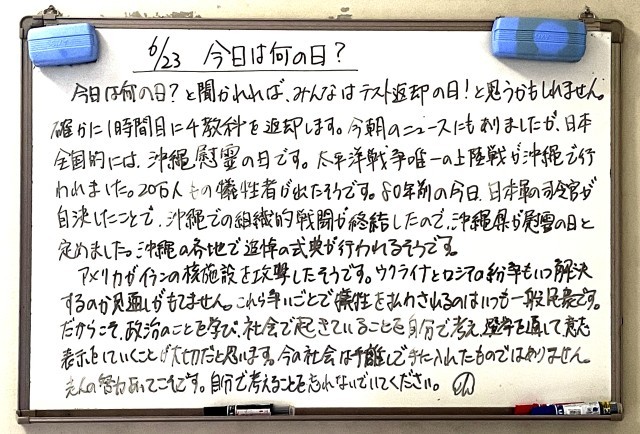 6/23 今日は何の日？
今日は何の日？と聞かれれば、みんなはテスト返却の日！と思うかもしれません。
確かに1時間目に4教科を返却します。今朝のニュースにもありましたが、日本
全国的には、沖縄慰霊の日です。太平洋戦争唯一の上陸戦が沖縄で行
われました。20万人もの犠牲者が出たそうです。80年前の今日、日本軍の司令官が
自決したことで、沖縄での組織的戦闘が終結したので、沖縄県が慰霊の日と
定めました。沖縄の各地で追悼の式典が行われるそうです。
アメリカがイランの核施設を攻撃したそうです。ウクライナとロシアの紛争もいつ解決
するのか見通しがもてません。これら争いごとで犠牲を払わされるのはいつも一般民衆です。
だからこそ、政治のことを学び、社会で起きていることを自分で考え、選挙を通して意志
表示をしていくことが大切だと思います。今の社会は手離しで手に入れたものではありません。
先人の努力あってこそです。自分で考えることを忘れないでいてください。